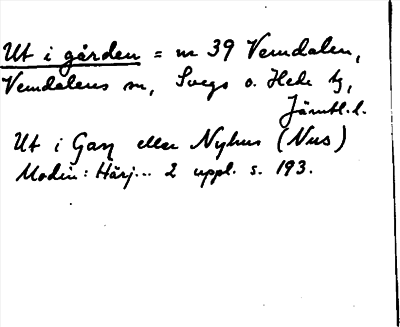 Ut i gården = nr 39 Vemdalen,
Vemdalens sn, Svegs o. Hede tg,
Jämtl. l.
Ut i Gaɲ eller Nyhus (Nus)
Modin: Härj... 2 uppl. s. 193.